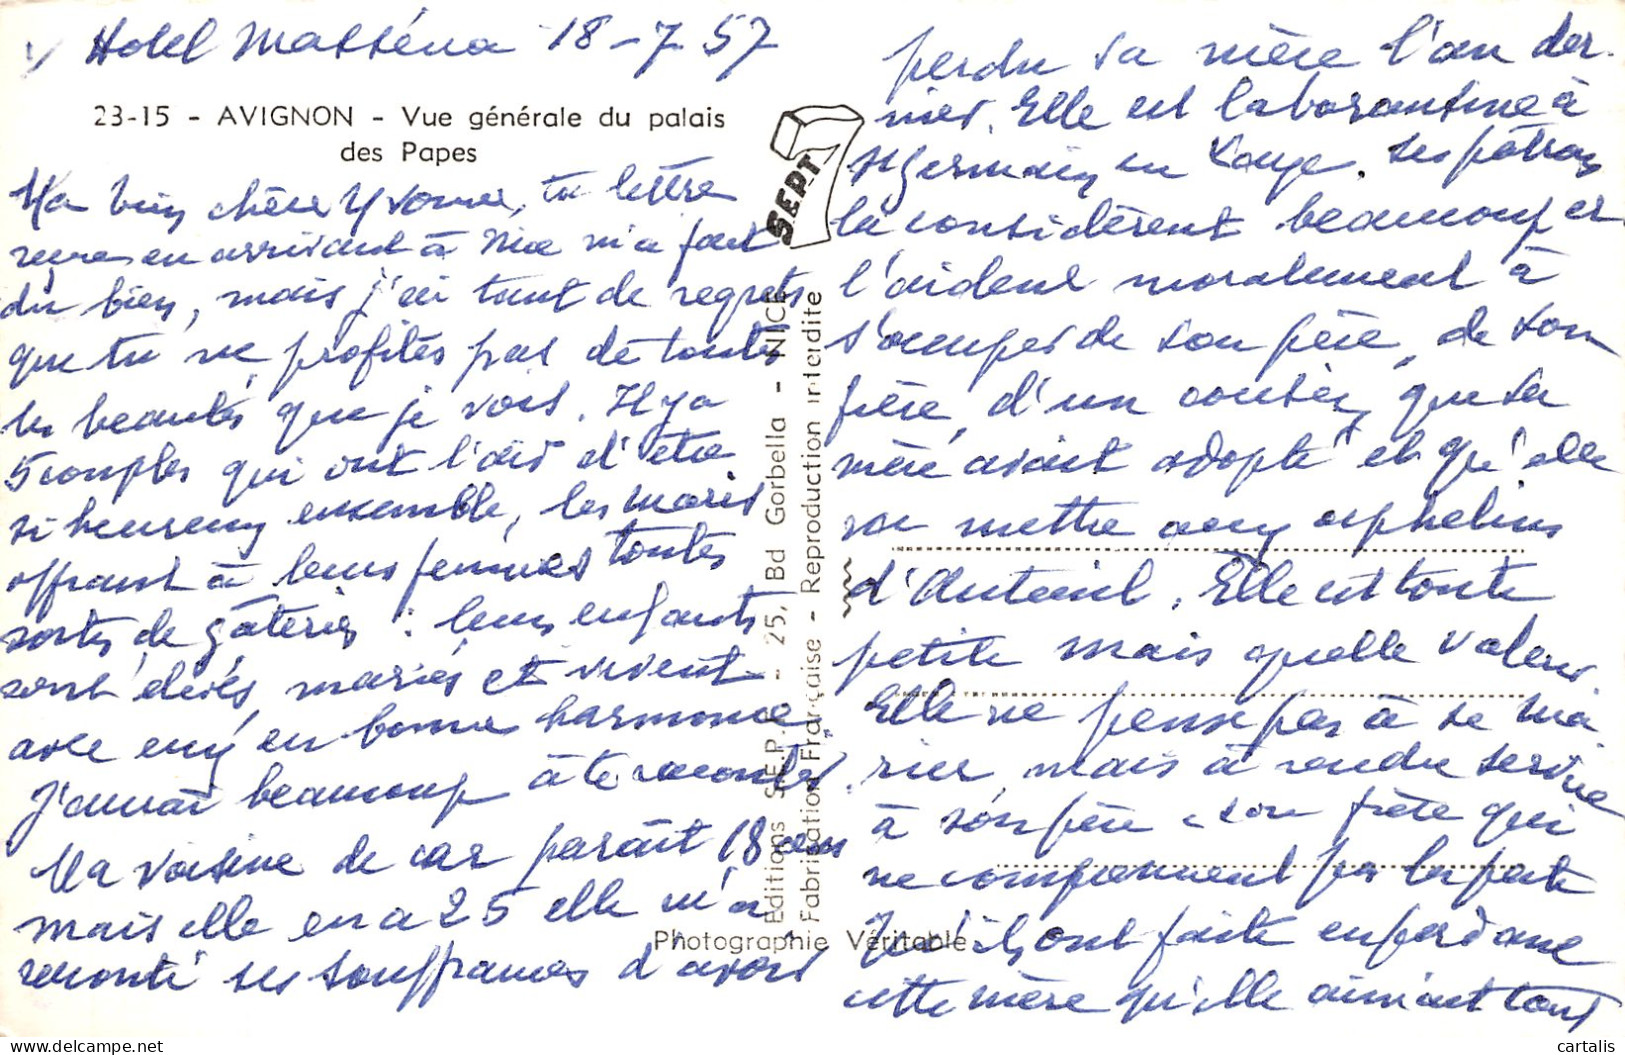 Hotel Masséna 18-7 57
23-15 - AVIGNON - Vue générale du palais
des Papes
Ma bien chère Yvonne, ta lettre
reçue en arrivant à Nice m'a fait
du bien, mais j'ai tant de regrets
que tu ne profites pas de toutes
les beautés que je vois. Il y a
5 couples qui ont l'air d'être
si heureux ensemble, les maris
offrant à leurs femmes toutes
sortes de gâteries : leurs enfants
sont élevés, mariés et vivent
avec eux en bonne harmonie
J'aurai beaucoup à te raconter.
Ma voisine de car paraît 18 ans
mais elle en a 25 elle m'a
raconté ses souffrances d'avoir
perdu sa mère l'an der-
nier. Elle est laborantine à
St Germain en Laye. Ses patrons
la considèrent beaucoup et
l'aident moralement à
s'occuper de son père, de son
frère, d'un cousin, que sa
mère avait adopté et qu'elle
va mettre aux orphelins
d'Auteuil. Elle est toute
petite mais quelle valeur
Elle ne pense pas à se ma
rier, mais à rendre service
à son père, son frère qui
ne comprennent pas la perte
qu'ils ont faite en perdant
cette mère qu'elle aimait tant
SEPT
Editions S.E.P.T. - 25, Bd Gorbella - NICE
Fabrication Française - Reproduction interdite
Photographie Véritable
cartalis